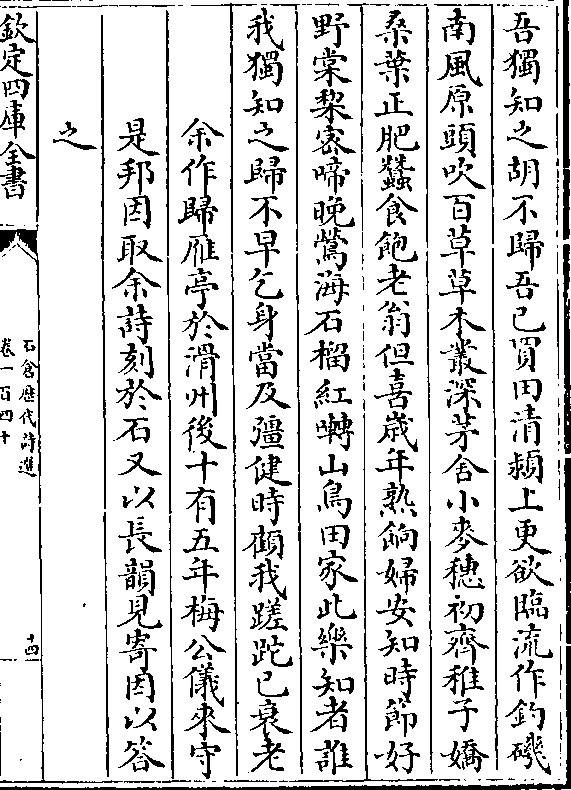 吾獨知之胡不歸吾已買田清潁上更欲臨流作釣磯
南風原頭吹百草草木叢深茅舍小麥穗初齊稚子嬌
桑葉正肥蠶食飽老翁但喜歲年熟餉婦安知時節好
野棠梨密啼晚鶯海石榴紅囀山鳥田家此樂知者誰
我獨知之歸不早乞身當及彊健時顧我蹉跎已衰老
余作歸雁亭於滑州後十有五年梅公儀來守
是邦因取余詩刻於石又以長韻見寄因以答
之
欽定四庫全書
石倉歷代詩選
卷一百四十
十四